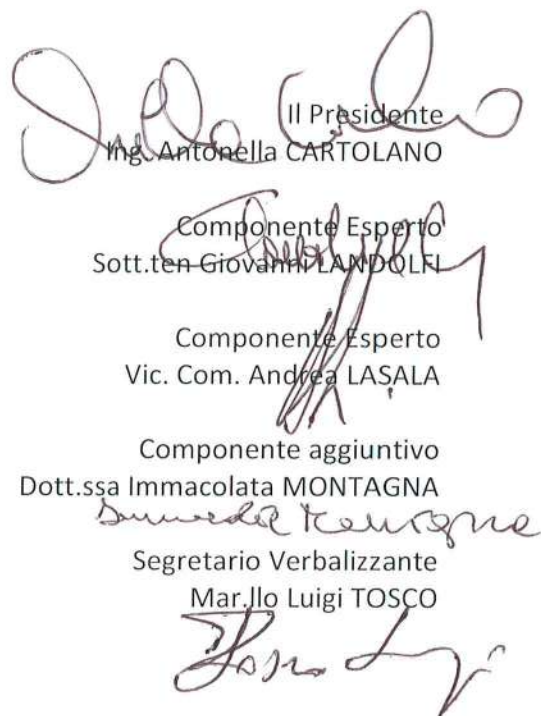 Il Presidente
Ing. Antonella CARTOLANO
Componente Esperto
Sott.ten Giovanni LANDOLFI
Componente Esperto
Vic. Com. Andrea LASALA
Componente aggiuntivo
Dott.ssa Immacolata MONTAGNA
Segretario Verbalizzante
Mar.llo Luigi TOSCO